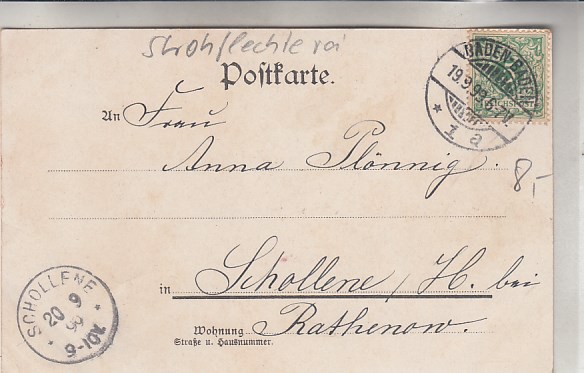 Strohflechterei
Postkarte.
BADEN-BADEN
19.9.99.6-7V.
* 1 a
REICHSPOST
An Frau
Anna Plönnig.
8,-
in Schollene / H. bei
Rathenow.
Wohnung
Straße u. Hausnummer.
SCHOLLENE
20 9
99
* 9-10V. *